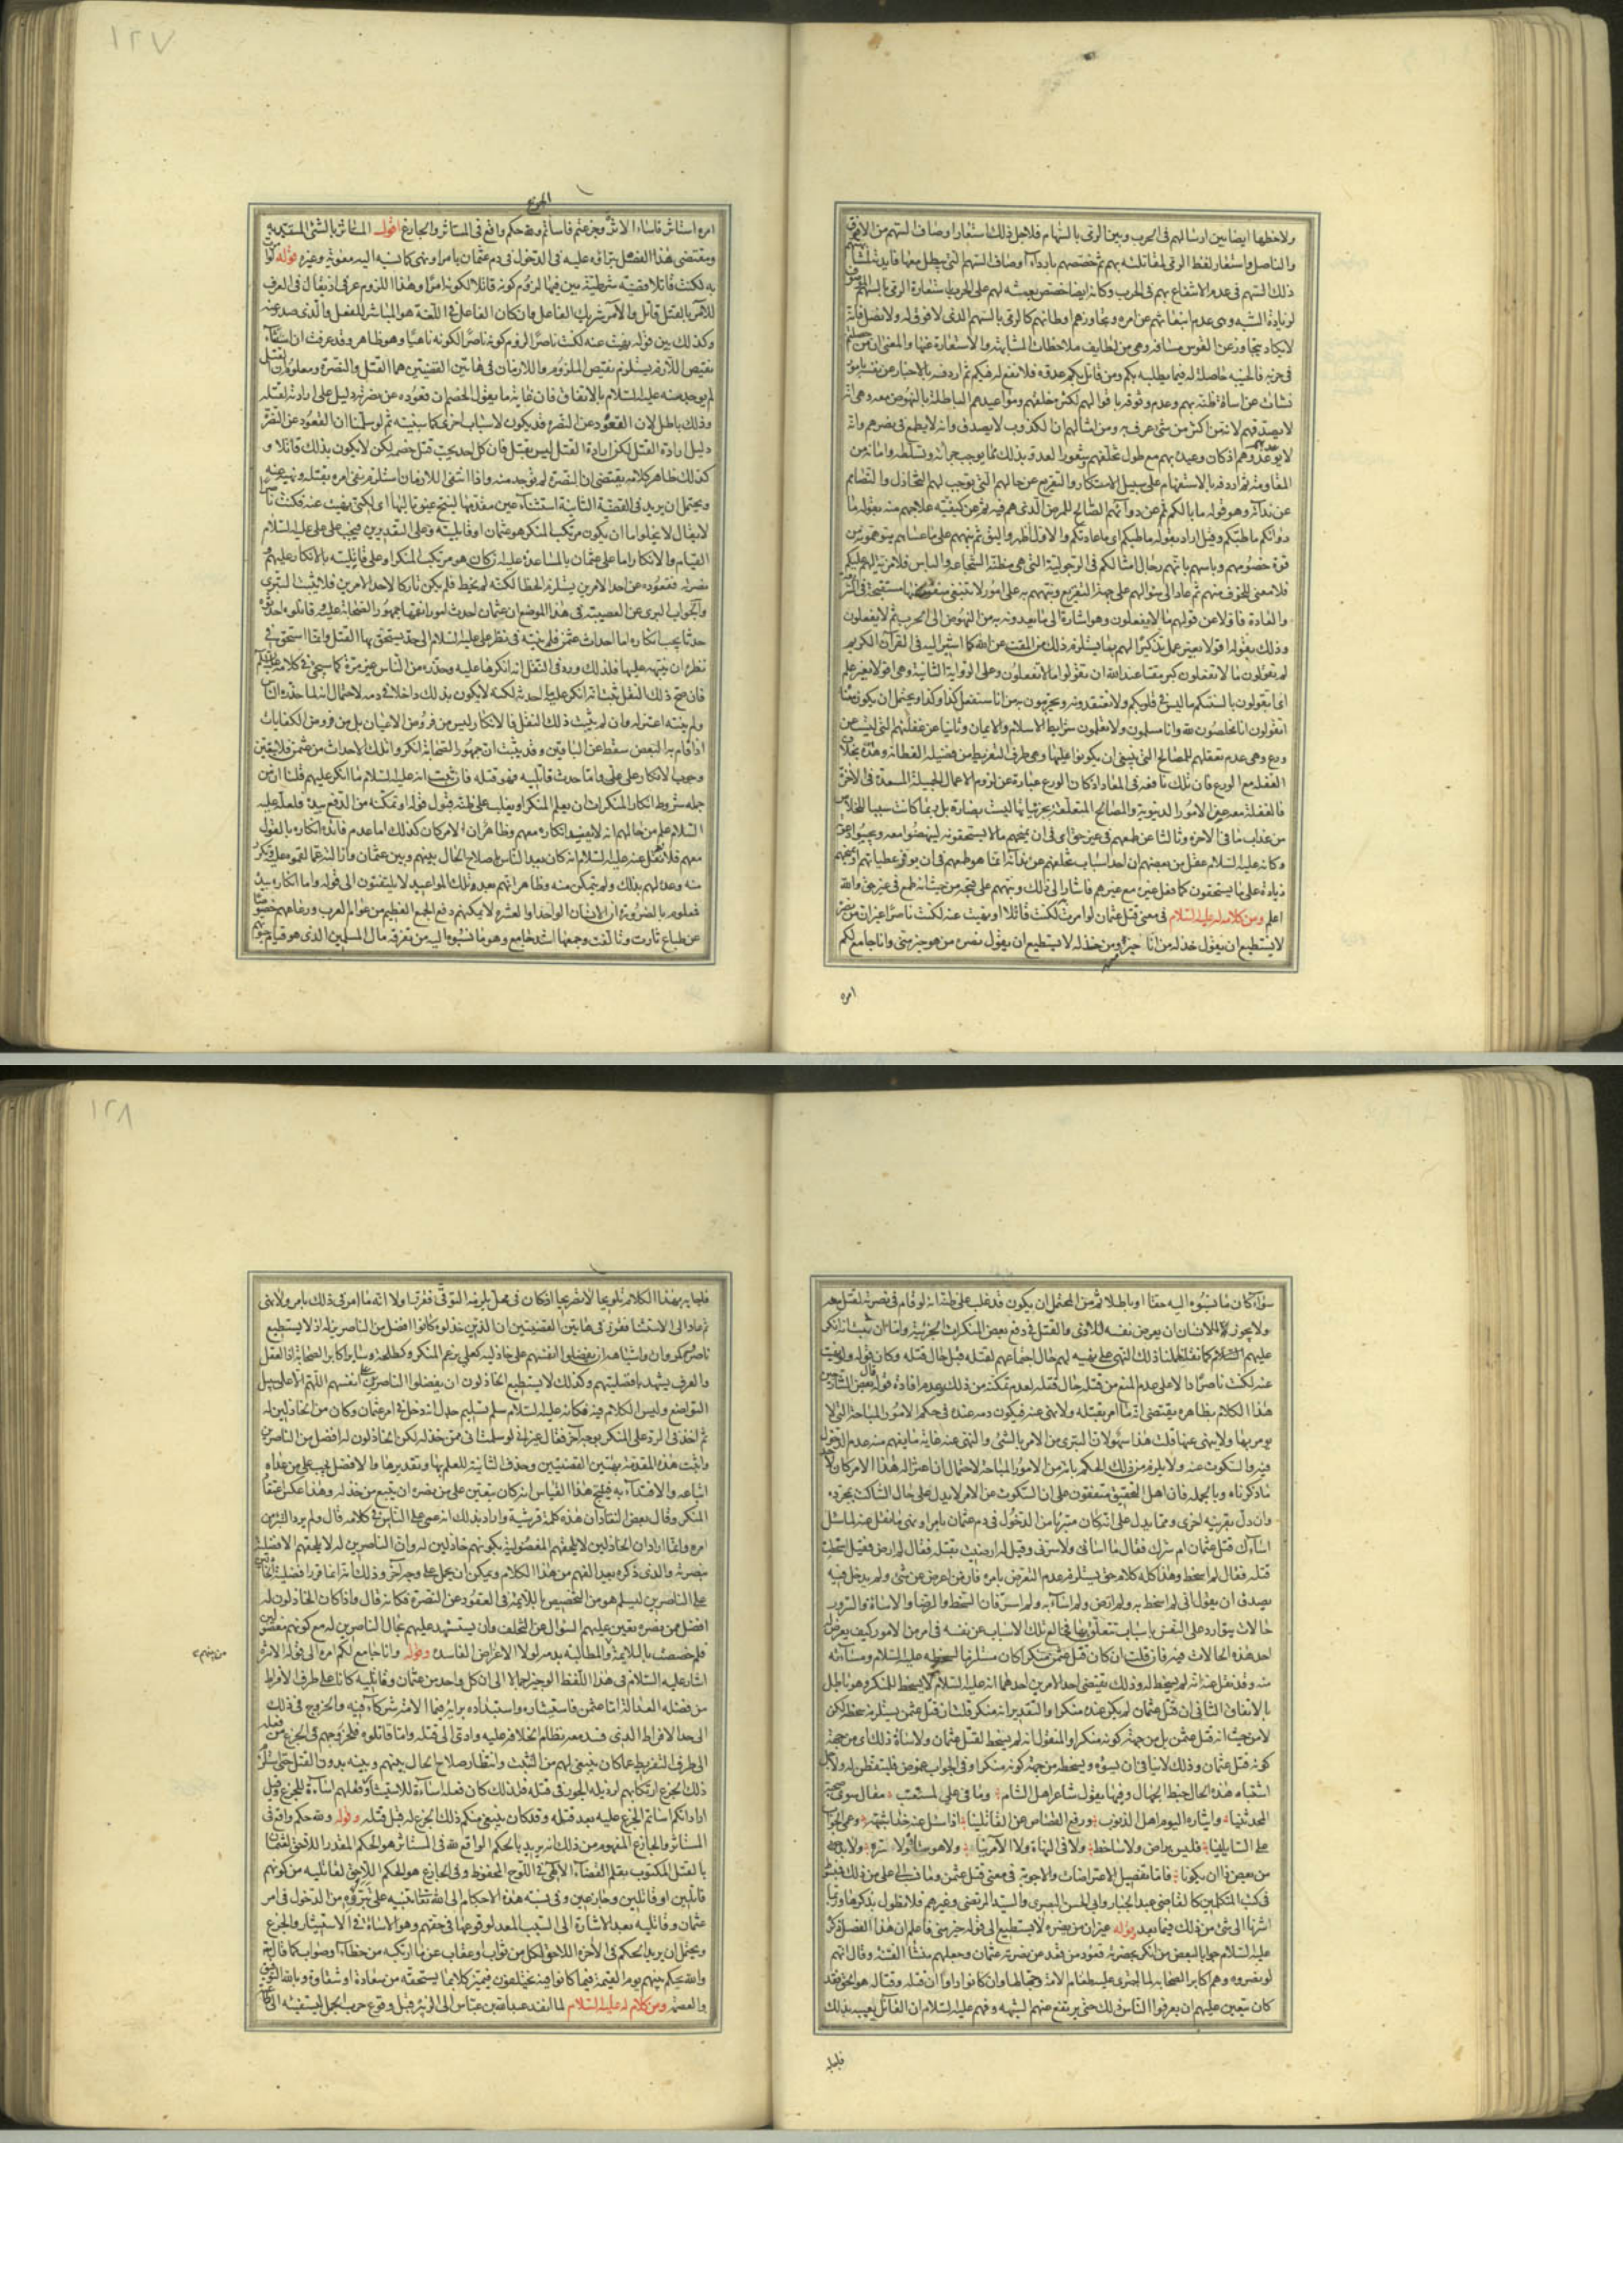 ولاحظها ايضا بين ارسالهم فى الحرب وبين الرمى بالسهام فلاجل ذلك استعار اوصاف السهم من الافوق
والناصل واستعار لفظ الرمى لمقاتلته بهم ثم خصصهم بارداء اوصاف السهم التى يبطل معها فايدته لمشابهتهم
ذلك السهم فى عدم الانتفاع بهم فى الحرب وكانه ايضا خصص بعثه لهم على الحرب باستعارة الرمى بالسهم
لزيادة الشبه وهى عدم انبعاثهم عن امره وتجاوزهم اوطانهم كالرمى بالسهم الذى لا فوق له ولا نصل فانه
لا يكاد يتجاوز عن القوس مسافه وهى من لطايف ملاحظات المشابهة والاستعارة عنها والمعنى ان من
فى حزبه فالخيبه حاصلة له فيما يطلبه بكم ومن قاتل بكم عدوه فلا نفع له فيكم ثم اردفه بالاخبار عن نفسه بامور
نشات عن اساءة ظنه بهم وعدم وثوقه باقوالهم لكثرة خلفهم ومواعيدهم الباطلة بالنهوض معه وهى انه
لا يصدقهم لانه من اكثر من شئ عرف به ومن امثالهم ان الكذوب لا يصدق وانه لا يطمع فى نصرهم وانه
لا يوعد عدوهم اذ كان وعيده بهم مع طول تخلفهم وشعور العدو بذلك مما يوجب جراته وتسلطه وامانه من
المقاومة ثم اردفه بالاستفهام على سبيل الاستنكار والتقريع عن حالهم التى توجب لهم التخاذل والتصامم
عن ندائه وهو قوله ما بالكم ثم عن دوائهم الصالح للمرض الذى هم فيه ثم عن كيفية علاجهم منه بقوله ما
دوائكم ما طبكم وقيل اراد بقوله ما طبكم اى ما عادتكم والاول اظهر واليق ثم نبههم على ما عساهم يتوهمونه من
قوة خصومهم وباسهم بانهم رجال امثالكم فى الرجولية التى هى مظنة الشجاعه والباس فلا مزية لهم عليكم
فلا معنى للخوف منهم ثم عاد الى سوالهم على جهة التقريع ونبههم به على امور لا تنبغى مستقبحة فى الشرع
والعادة فاولا عن قولهم ما لا يفعلون وهو اشارة الى ما يعدونه به من النهوض الى الحرب ثم لا يفعلون
وذلك بقوله اقولا بغير عمل تذكيرا لهم بما يستلزم ذلك من المقت عند الله كما اشير اليه فى القرآن الكريم
لم تقولون ما لا تفعلون كبر مقتا عند الله ان تقولوا ما لا تفعلون وعلى الرواية الثانية وهى اقولا بغير علم
اى اتقولون بالسنتكم ما ليس فى قلوبكم ولا تعتقدونه وتجزمون به من انا سنفعل كذا وكذا ويحتمل ان يكون معناه
اتقولون انا مخلصون لله وانا مسلمون ولا تعلمون شرايط الاسلام والايمان وثانيا عن غفلتهم التى ليست من
ورع وهى عدم تعقلهم للمصالح التى ينبغى ان يكونوا عليها وهى طرف التفريط من فضيلة الفطانه وهذه بخلاف
الغفله مع الورع فان تلك نافعه فى المعاد اذ كان الورع عبارة عن لزوم الاعمال الجميلة المسعدة فى الاخرة
فالغفلة معه عن الامور الدنيوية والمصالح المتعلقة بجزئياتها ليست بضارة بل ربما كانت سببا للخلاص
من عذاب ما فى الاخره وثالثا عن طمعهم فى غير حق اى فى ان يمنحهم ما لا يستحقونه لينهضوا معه ويجيبوا دعوته
وكانه عليه السلام عقل من بعضهم ان احد اسباب تخلفهم عن ندائه انما هو طمعهم فى ان يوفر عطياتهم
زيادة على ما يستحقون كما فعل غيره مع غيرهم فاشار الى ذلك ونبههم على قبحه من حيث انه طمع فى غير حق والله
اعلم ومن كلام له عليه السلام فى معنى قتل عثمان لو امرت به لكنت قاتلا او نهيت عنه لكنت ناصرا غير ان من نصره
لا يستطيع ان يقول خذله من انا خير منه ومن خذله لا يستطيع ان يقول نصره من هو خير منى وانا جامع لكم
امره
١٢٧
امره استاثر فاساء الاثرة وجزعتم فاساتم ولله حكم واقع فى المستاثر والجازع اقول المستاثر بالشئ المستبد به
ومقتضى هذا الفصل تبراؤه عليه فى الدخول فى دم عثمان بامر او نهى كما نسبه اليه معوية وغيره قوله لو امرت
به لكنت قاتلا قضية شرطية بين فيها لزوم كونه قاتلا لكونه امرا وهذا اللزوم عرفى اذ يقال فى العرف
للآمر بالقتل قاتل والآمر شريك الفاعل وان كان الفاعل فى اللغة هو المباشر للفعل والذى صدر عنه
وكذلك بين قوله نهيت عنه لكنت ناصرا لزوم كونه ناصرا لكونه ناهيا وهو ظاهر وقد عرفت ان استثناء
نقيض اللازم يستلزم نقيض الملزوم واللازمان فى هاتين القضيتين هما القتل والنصرة ومعلوم ان القتل
لم يوجد منه عليه السلام بالاتفاق فان غاية ما يقول الخصم ان قعوده عن نصرته دليل على ارادته لقتله
وذلك باطل لان القعود عن النصره قد يكون لاسباب اخرى كما سنبينه ثم لو سلمنا ان القعود عن النصرة
دليل ارادة القتل لكن ارادة القتل ليس بقتل فان كل احد يحب قتل خصمه لكن لا يكون بذلك قاتلا و
كذلك ظاهر كلامه يقتضى ان النصرة لم توجد منه واذا انتفى اللازمان استلزم نفى امره بقتله ونهيه عنه
ويحتمل ان يريد فى القضية الثانية استثناء عين مقدمها لينتج عين تاليها اى لكنى نهيت عنه فكنت ناصرا
لا يقال لا يخلو اما ان يكون مرتكب المنكر هو عثمان او قاتليه وعلى التقديرين فيجب على على عليه السلام
القيام والانكار اما على عثمان بالمساعدة عليه ان كان هو مرتكب المنكر او على قاتليه بالانكار عليهم
بنصرته فقعوده عن احد الامرين يستلزم الخطا لكنه لم يخط فلم يكن تاركا لاحد الامرين فلا يثبت التبرى
والجواب البرى عن العصبية فى هذا الموضع ان عثمان احدث امورا نقمها جمهور الصحابة عليه وقاتلوه احدثوا
حدثا يجب انكاره اما احداث عثمن فلم ينته فى نظر على عليه السلام الى حد يستحق بها القتل وانما استحق فى
نظره ان ينبه عليها فلذلك ورد فى النقل انه انكرها عليه وحذره من الناس غير مرة كما سيجئ فى كلامه عليه السلم
فان صح ذلك النقل ثبت انه انكر عليه ما احدثه لكنه لا يكون بذلك داخلا فى دمه لاحتمال انه لما حذره الناس
ولم ينته اعتزله وان لم يثبت ذلك النقل فالانكار ليس من فروض الاعيان بل من فروض الكفايات
اذا قام به البعض سقط عن الباقين وقد يثبت ان جمهور الصحابة انكروا تلك الاحداث من عثمن فلا يتعين
وجوب الانكار على على واما حدث قاتليه فهو قتله فان ثبت انه عليه السلام ما انكر عليهم قلنا ان من
جملة شروط انكار المنكر ان يعلم المنكر او يغلب على ظنه قبول قوله او تمكنه من الدفع بيده فلعله عليه
السلام علم من حالهم انه لا يفيد انكاره معهم وظاهر ان الامر كان كذلك اما عدم فائدة انكاره بالقول
معهم فلانه نقل عنه عليه السلام انه كان يعد الناس باصلاح الحال بينهم وبين عثمان وازالته عما نقموه عليه وتكرر
منه وعده لهم بذلك ولم يتمكن منه وظاهر انهم بعد تلك المواعيد لا يلتفتون الى قوله واما انكاره بيده
فمعلوم بالضرورة ان الانسان الواحد او العشرة لا يمكنهم دفع الجمع العظيم من عوام العرب ورعاعهم خصوصا
عن طباع ثارت وتالفت وجمعها اشد جامع وهو ما نسبوه اليه من تفرقه مال المسلمين الذى هو قوام حيوتهم
سواء كان ما نسبوه اليه حقا او باطلا ثم من المحتمل ان يكون قد غلب على ظنه انه لو قام فى نصرته لقتل معه
ولا يجوز للانسان ان يعرض نفسه للاذى والقتل فى دفع بعض المنكرات الجزئية واما ان ثبت انه انكر
عليهم كما نقلنا حملنا ذلك النهى على نهيه لهم حال اجتماعهم لقتله قبل حال قتله وكان قوله ولو نهيت
عنه لكنت ناصرا دالا على عدم المنع من قتله حال قتله لعدم تمكنه من ذلك وعدم افادة قوله قال بعض الشارحين
هذا الكلام بظاهره يقتضى انه ما امر بقتله ولا نهى عنه فيكون دمه عنده فى حكم الامور المباحة التى لا
يومر بها ولا ينهى عنها قلت هذا سهو لان التبرى من الامر بالشئ والنهى عنه غاية ما يفهم منه عدم الدخول
فيه والسكوت عنه ولا يلزم من ذلك الحكم بانه من الامور المباحة لاحتمال ان اعتزاله هذا الامر كان لاحد
ما ذكرناه وبالجمله فان اهل التحقيق متفقون على ان السكوت عن الامر لا يدل على حال الساكت بمجرده
وان دل بقرينة اخرى ومما يدل على انه كان متبريا من الدخول فى دم عثمان بامر او نهى ما نقل عنه لما سئل
اساءك قتل عثمان ام سرك فقال ما ساءنى ولا سرنى وقيل له ارضيت بقتله فقال لم ارض فقيل اسخطت
قتله فقال لم اسخط وهذا كله كلام حق يستلزم عدم التعرض بامره فان من اعرض عن شئ ولم يدخل فيه
يصدق ان يقول انى لم اسخط به ولم ارض ولم اساء به ولم اسر فان السخط والرضا والاساءة والسرور
حالات يتوارد على النفس باسباب تتعلق بها فخالع تلك الاسباب عن نفسه فى امر من الامور كيف يعرض
احد هذه الحالات فيه فان قلت ان كان قتل عثمن منكرا كان مستلزما لسخطه عليه السلام ومساءته
منه وقد نقل عنه انه لم يسخط له وذلك يقتضى احد الامرين احدهما انه عليه السلام لا يسخط للمنكر وهو باطل
بالاتفاق الثانى ان قتل عثمان لم يكن عنده منكرا والتقدير انه منكر قلت ان قتل عثمن يستلزم سخطه لكن
لا من حيث انه قتل عثمن بل من جهة كونه منكرا والمنقول انه لم يسخط لقتل عثمان ولا ساءه ذلك اى من جهة
كونه قتل عثمان وذلك لا ينافى ان يسوءه ويسخطه من جهة كونه منكرا وفى الجواب غموض فليتفطن له ولاجل
اشتباه هذه الحال خبط الجهال وفيها يقول شاعر اهل الشام وما فى على لمستعتب مقال سوى صحبة
المحدثينا وايثاره اليوم اهل الذنوب ورفع القصاص عن القاتلينا اذا سئل عنه حدا شبهة وعمى الجواب
على السايلينا فليس براض ولا ساخط ولا فى النهاة ولا الآمرينا ولا هو ساءه ولا سره ولا بد
من بعض ذا ان يكونا فاما تفصيل الاعتراضات والاجوبة فى معنى قتل عثمن وما نسب الى على من ذلك فمبسوط
فى كتب المتكلمين كالقاضى عبد الجبار وابى الحسن البصرى والسيد المرتضى وغيرهم فلا نطول بذكرها وربما
اشرنا الى شئ من ذلك فيما بعد وقوله غير ان من نصره لا يستطيع الى قوله خير منى فاعلم ان هذا الفصل ذكره
عليه السلام جوابا لبعض من انكر بحضرته قعود من قعد عن نصرة عثمان وجعلهم منشأ الفتنة وقال انهم
لو نصروه وهم اكابر الصحابه لما اجترى عليه طغام الامة وجهالها وان كانوا راوا ان قتله وقتاله هو الحق فقد
كان يتعين عليهم ان يعرفوا الناس ذلك حتى يرتفع عنهم الشبهه وفهم عليه السلام ان القائل يعنيه بذلك
فاجابه
١٢٨
فاجابه بهذا الكلام تلويحا لا تصريحا اذ كان فى محل يلزمه التوقى فقرر اولا انه ما امر فى ذلك بامر ولا نهى
ثم عاد الى الاستثنا فقرر فى هاتين القضيتين ان الذين خذلوه كانوا افضل من الناصرين له اذ لا يستطيع
ناصروه كمروان واشباهه ان يفضلوا انفسهم على خاذليه كعلى بزعم المنكر وكطلحة وسائر اكابر الصحابة اذ العقل
والعرف يشهد بافضليتهم وكذلك لا يستطيع الخاذلون ان يفضلوا الناصرين على انفسهم اللهم الا على سبيل
التواضع وليس الكلام فيه فكانه عليه السلام سلم تسليم جدل انه دخل فى امر عثمان وكان من الخاذلين له
ثم اخذ فى الرد على المنكر بوجه آخر فقال غير انى لو سلمت انى ممن خذله لكن الخاذلون له افضل من الناصرين
واثبت هذه المقدمة بهتين القضيتين وحذف الثانية للعلم بها وتقديرها والافضل يجب على من عداه
اتباعه والاقتداء به فينتج هذا القياس انه كان يتعين على من نصره ان يتبع من خذله وهذا عكس اعتقاد
المنكر وقال بعض النقاد ان هذه كلمة قرشية واراد بذلك انه عمى على الناس فى كلامه قال ولم يرد التبرى من
امره وانما اراد ان الخاذلين لا يلحقهم المفضولية بكونهم خاذلين له وان الناصرين له لا يلحقهم الافضلية
بنصرته والذى ذكره بعيد الفهم من هذا الكلام ويمكن ان يحمل على وجه آخر وذلك انه انما قرر افضلية الخاذلين
على الناصرين ليسلم هو من التخصيص باللائمة فى القعود عن النصرة فكانه قال واذا كان الخاذلون له
افضل ممن نصره تعين عليهم السوال عن التخلف وان يستشهد عليهم بحال الناصرين له مع كونهم مفضولين
فلم خصصت باللائمة والمطالبة بدمه لولا الاعراض الفاسدة وقوله وانا جامع لكم امره الى قوله الاثرة
من بينهم
اشار عليه السلام فى هذا اللفظ الوجيز اجمالا الى ان كل واحد من عثمان وقاتليه كانا على طرف الافراط
من فضيلة العدالة اما عثمن فاستيثاره واستبداده برايه فيما الامة شركاء فيه والخروج فى ذلك
الى حد الافراط الذى فسد معه نظام الخلافه عليه وادى الى قتله واما قاتلوه فلخروجهم فى الجزع من فعله
الى طرف التفريط عما كان ينبغى لهم من التثبت وانتظار صلاح الحال بينهم وبينه بدون القتل حتى استلزم
ذلك الجزع ارتكابهم لرذيلة الجور فى قتله فلذلك كان فعله اساءة للاستيثار وفعلهم اساءة للجزع وقيل
اراد انكم اساتم الجزع عليه بعد قتله وقد كان ينبغى منكم ذلك الجزع له قبل قتله وقوله ولله حكم واقع فى
المستاثر والجازع المفهوم من ذلك انه يريد بالحكم الواقع لله فى المستاثر هو الحكم المقدر اللاحق لعثمان
بالقتل المكتوب بقلم القضاء الالهى فى اللوح المحفوظ وفى الجازع هو الحكم اللاحق لقاتليه من كونهم
قاتلين او قالين وجازعين وفى نسبة هذه الاحكام الى الله تعالى تنبيه على تبرؤه من الدخول فى امر
عثمان وقاتليه بعد الاشارة الى السبب المعد لوقوعها فى حقهم وهو الاساءة فى الاستيثار والجزع
ويحتمل ان يريد الحكم فى الآخرة اللاحق لكل من ثواب وعقاب عن ما ارتكبه من خطاء او صواب كما قال تع
والله يحكم بينهم يوم القيمة فيما كانوا فيه يختلفون فيميز كلا بما يستحقه من سعادة او شقاوة وبالله التوفيق
والعصمة ومن كلام له عليه السلام لما انفذ عبد الله بن عباس الى الزبير قبل وقوع حرب الجمل ليستفيئه الى طاعته